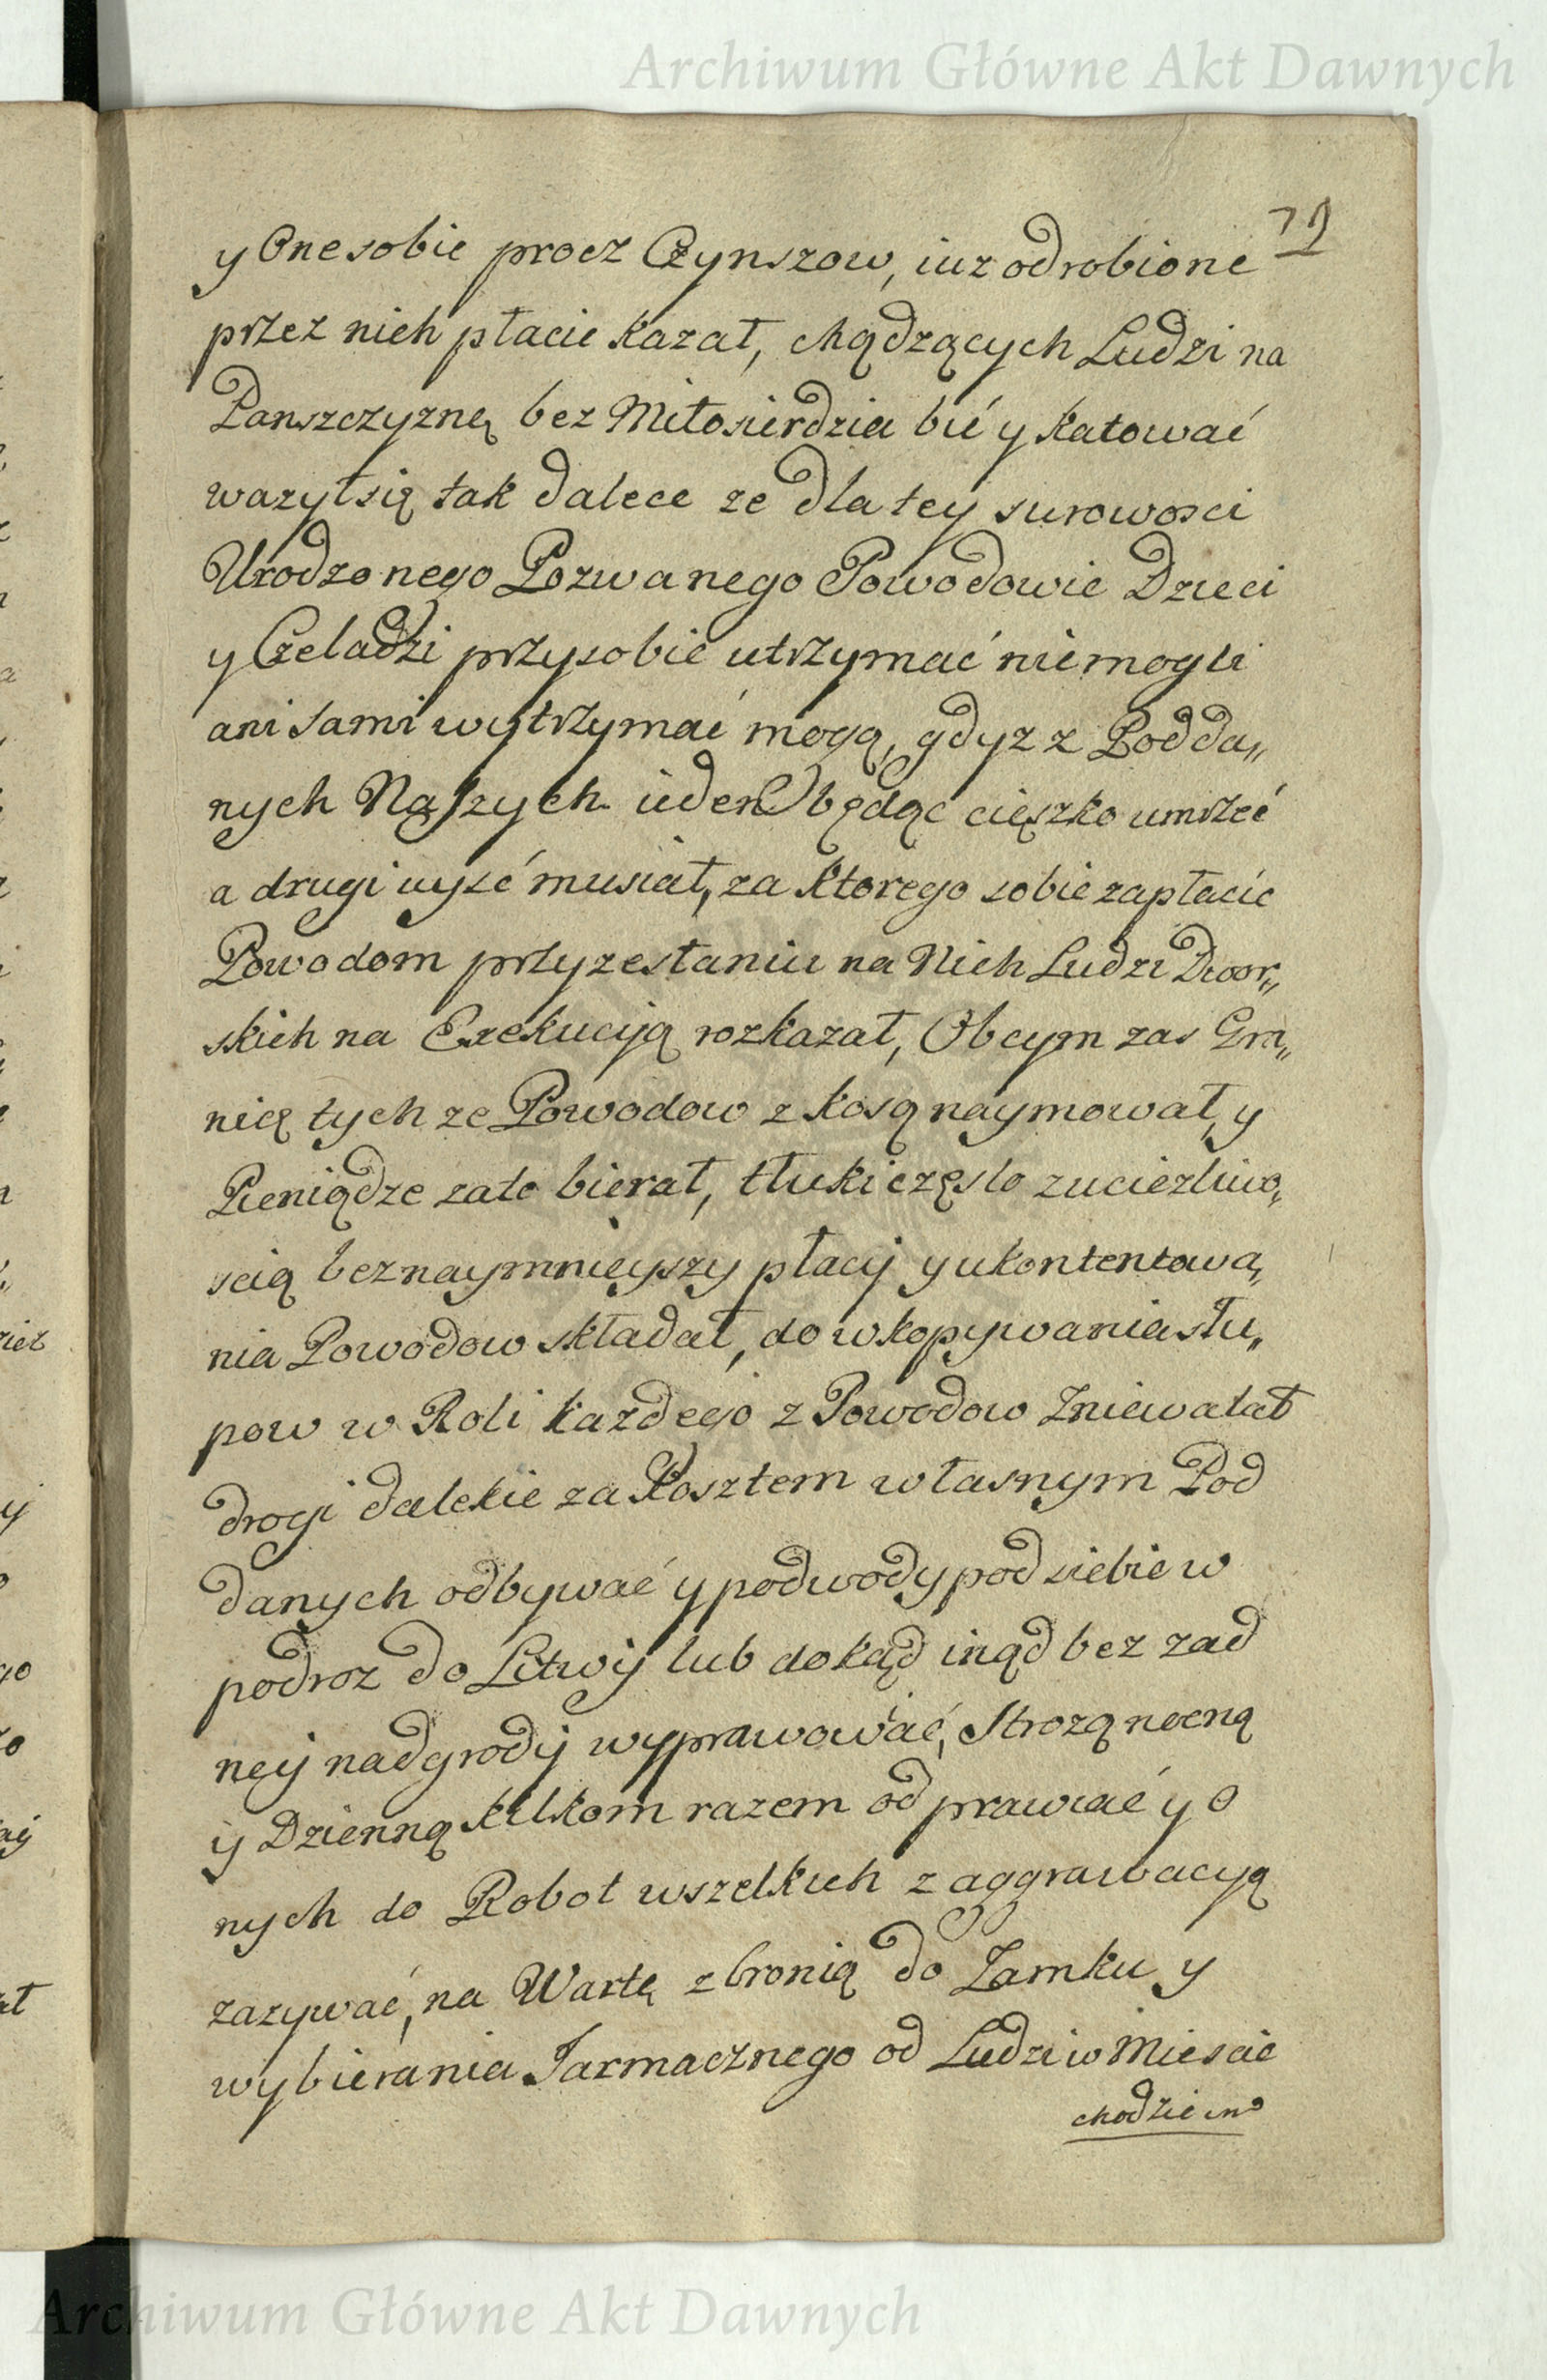 Archiwum Główne Akt Dawnych
79
y One sobie procz Czynszow, iuz odrobione
przez nich płacic kazał, chądzących Ludzi na
Panszczyznę bez Miłosierdzia bić y katować
wazył się tak dalece ze dla tey surowosci
Urodzonego Pozwanego Powodowie Dzieci
y Czeladzi przy sobie utrzymać nie mogli
ani sami wytrzymać mogą, gdyz z Podda„
nych Naszych ieden będąc cięszko umrzeć
a drugi uyść musiał, za ktorego sobie zapłacic
Powodom przy zesłaniu na Nich Ludzi Dwor„
skich na Exekucyją rozkazał, Obcym zas Gra„
nicą tych ze Powodow z kosą naymował, y
Pieniądze zato bierał, tłuki często z uciezliwo„
scią bez naymnieyszy płacy y ukontentowa„
nia Powodow składał, do wkopywania słu„
pow w Roli kazdego z Powodow Zniewalał
drogi dalekie za Kosztem własnym Pod
danych odbywać y podwody pod siebie w
podroz do Litwy lub dokąd inąd bez zad
ney nadgrody wyprawować, Strozą nocną
y Dzienną kilkom razem odprawiać y O
nych do Robot wszelkich z aggrawacyją
zazywać, na Wartę z bronią do Zamku y
wybierania Jarmacznego od Ludzi w Miescie
chodzic
Archiwum Główne Akt Dawnych